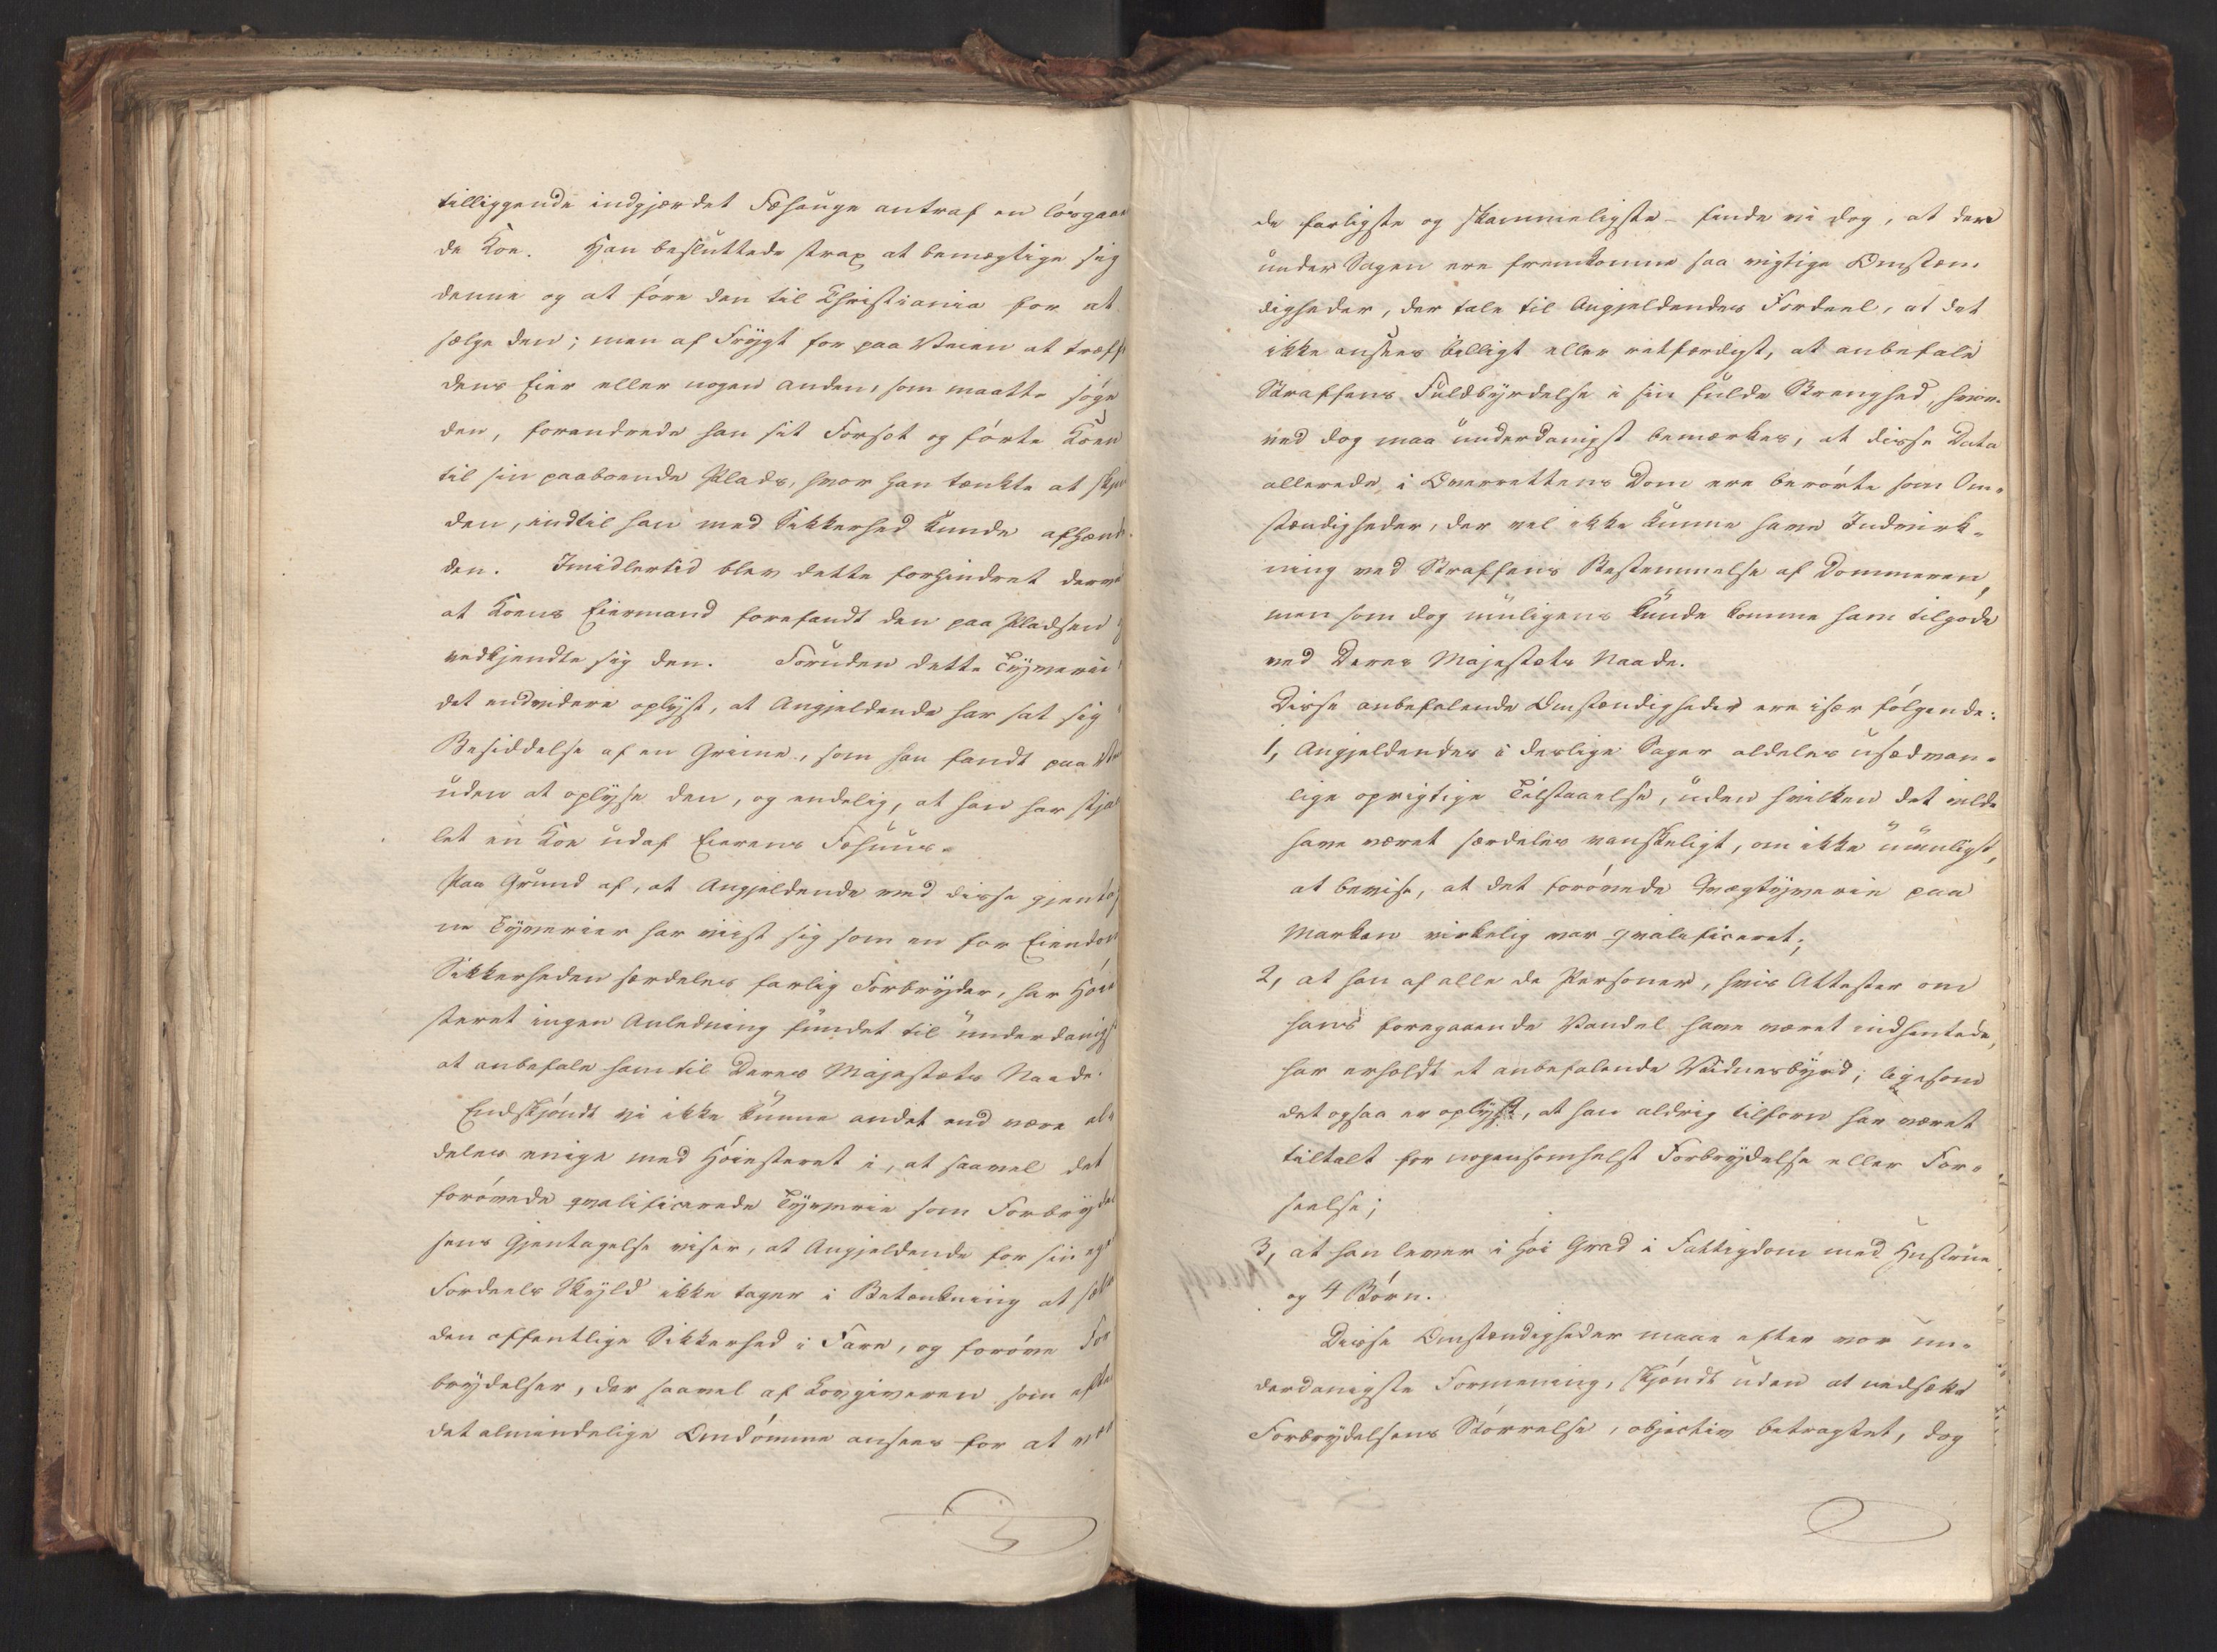 tilliggende indgjærdet Fæhauge antraf en løsgaaen
de Koe. Han besluttede strax at bemægtige sig
denne og at føre den til Christiania for at
sælge den; men af Frygt for paa Veien at træffe
dens Eier eller nogen anden, som maatte søge
den, forandrede han sit Forsæt og førte Koen
til sin paaboende Plads, hvor han tænkte at skjule
den, indtil han med Sikkerhed kunde afhænde
den. Imidlertid blev dette forhindret derved
at Koens Eiermand forefandt den paa Pladsen og
vedkjendte sig den. Foruden dette Tyverie er
det endvidere oplyst, at Angjeldende har sat sig i
Besiddelse af en Grime, som han fandt paa Veien
uden at oplyse den, og endelig, at han har stjaa-
let en Koe udaf Eierens Fæhuus.
Paa Grund af, at Angjeldende ved disse gjentag-
ne Tyverier har viist sig som en for Eiendoms
Sikkerheden særdeles farlig Forbryder, har Høie-
steret ingen Anledning fundet til underdanigst
at anbefale ham til Deres Majestæts Naade.
Endskjøndt vi ikke kunne andet end være al-
deles enige med Høiesteret i, at saavel det
forøvede qvalificerede Tyverie som Forbrydel
sens Gjentagelse viser, at Angjeldende for sin egen
Fordeels Skyld ikke tager i Betænkning at sætte
den offentlige Sikkerhed i Fare, og forøve For
brydelser, der saavel af Lovgiveren som efter
det almindelige Omdømme ansees for at være
de farligste og skammeligste – finde vi dog, at der
under Sagen ere fremkomne saa vigtige Omstæn-
digheder, der tale til Angjeldendes Fordeel, at det
ikke ansees billigt eller retfærdigt, at anbefale
Straffens Fuldbyrdelse i sin fulde Strenghed, hvor-
ved dog maa underdanigst bemærkes, at disse Data
allerede i Overrettens Dom ere berørte som Om-
stændigheder, der vel ikke kunne have Indvirk-
ning ved Straffens Bestemmelse af Dommeren,
men som dog muligens kunde komme ham tilgode
ved Deres Majestæts Naade.
Disse anbefalende Omstændigheder ere især følgende:
1, Angjeldendes i deslige Sager aldeles usædvan-
lige oprigtige Tilstaaelse, uden hvilken det vilde
have været særdeles vanskeligt, om ikke umuligt,
at bevise, at det forøvede Qvægtyverie paa
Marken virkelig var qvalificeret;
2, at han af alle de Personer, hvis Attester om
hans foregaaende Vandel have været indhentede,
har erholdt et anbefalende Vidnesbyrd; ligesom
det ogsaa er oplyst, at han aldrig tilforn har været
tiltalt for nogensomhelst Forbrydelse eller For-
seelse;
3, at han lever i høi Grad i Fattigdom med Hustrue
og 4 Børn.
Disse Omstændigheder maae efter vor un-
derdanigste Formening, skjøndt uden at nedsætte
Forbrydelsens Størrelse, objectiv betragtet, dog